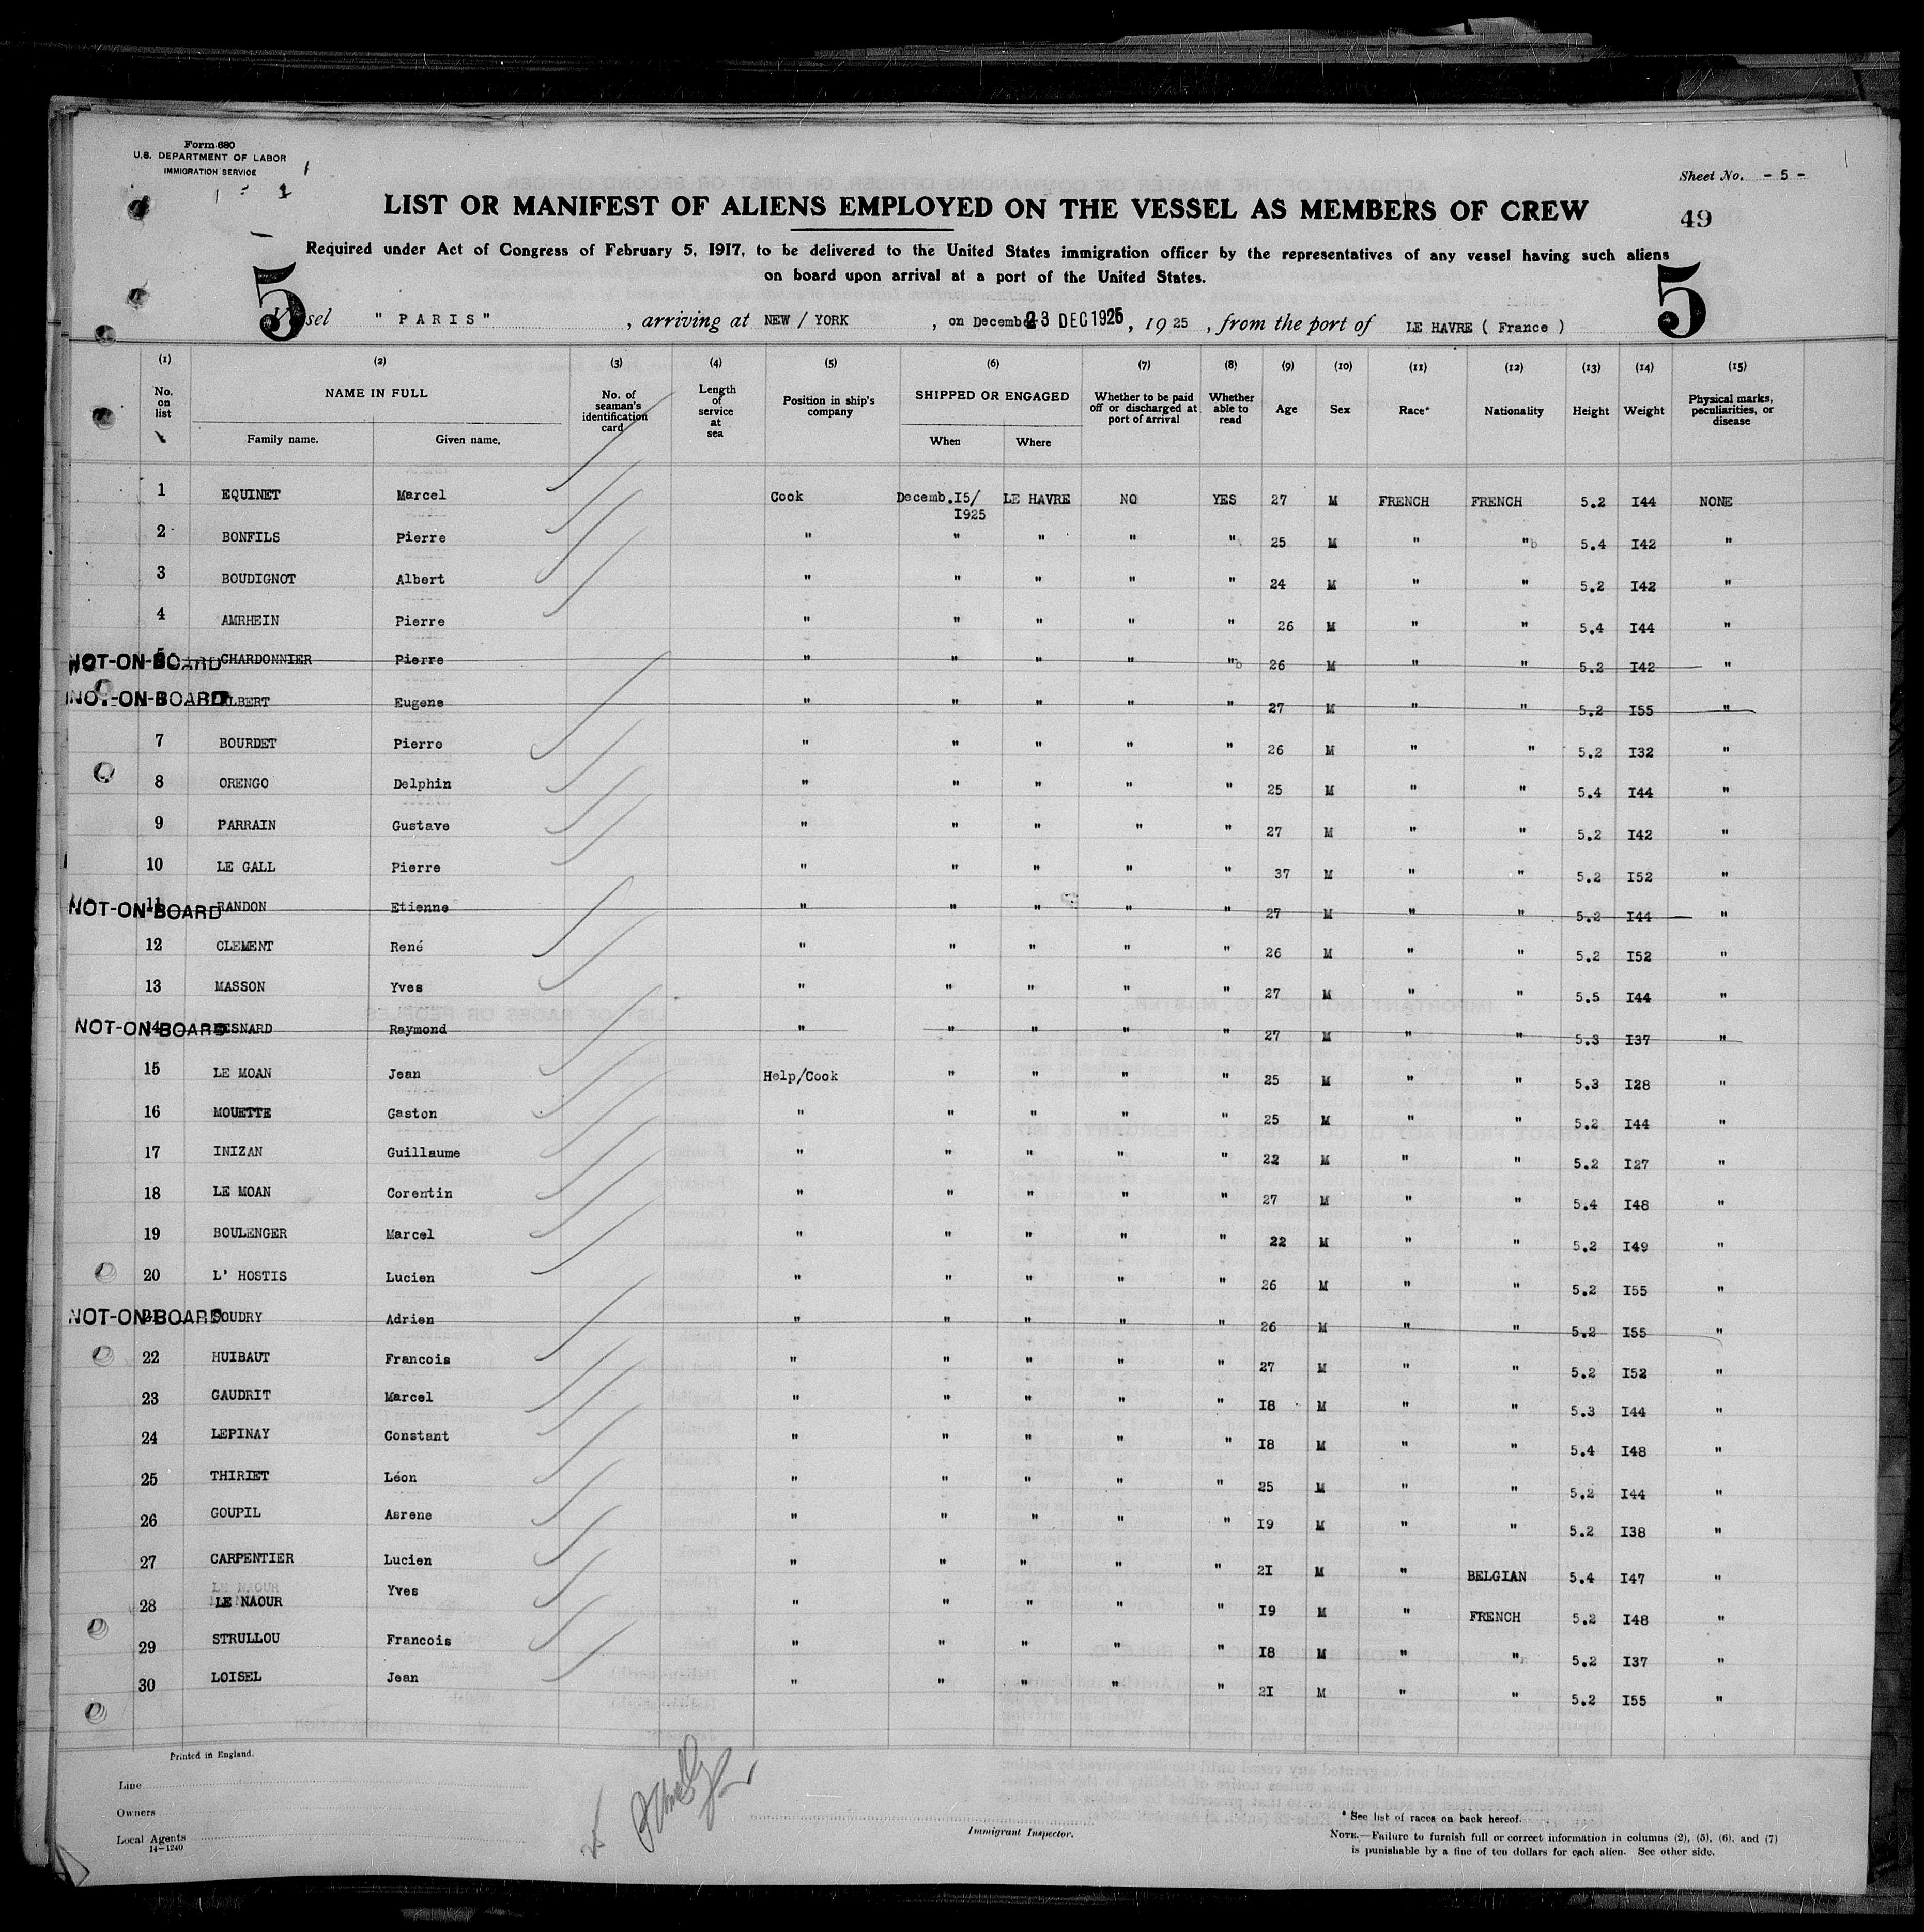 Form 680
U.S. DEPARTMENT OF LABOR
IMMIGRATION SERVICE
Sheet No. - 5 -
LIST OR MANIFEST OF ALIENS EMPLOYED ON THE VESSEL AS MEMBERS OF CREW
49
Required under Act of Congress of February 5, 1917, to be delivered to the United States immigration officer by the representatives of any vessel having such aliens
on board upon arrival at a port of the United States.
5 5
Vessel "PARIS", arriving at NEW / YORK, on December 23 DEC 1925, 1925, from the port of LE HAVRE ( France )
(1) (2) (3) (4) (5) (6) (7) (8) (9) (10) (11) (12) (13) (14) (15)
No. on list NAME IN FULL No. of seaman's identification card Length of service at sea Position in ship's company SHIPPED OR ENGAGED Whether to be paid off or discharged at port of arrival Whether able to read Age Sex Race* Nationality Height Weight Physical marks, peculiarities, or disease
Family name. Given name. When Where
1 EQUINET Marcel Cook Decemb.I5/ I925 LE HAVRE NO YES 27 M FRENCH FRENCH 5.2 I44 NONE
2 BONFILS Pierre " " " " " 25 M " " 5.4 I42 "
3 BOUDIGNOT Albert " " " " " 24 M " " 5.2 I42 "
4 AMRHEIN Pierre " " " " " 26 M " " 5.4 I44 "
NOT-ON-BOARD 5 CHARDONNIER Pierre " " " " " 26 M " " 5.2 I42 "
NOT-ON-BOARD ALBERT Eugene " " " " " 27 M " " 5.2 I55 "
7 BOURDET Pierre " " " " " 26 M " " 5.2 I32 "
8 ORENGO Delphin " " " " " 25 M " " 5.4 I44 "
9 PARRAIN Gustave " " " " " 27 M " " 5.2 I42 "
10 LE GALL Pierre " " " " " 37 M " " 5.2 I52 "
NOT-ON-BOARD 11 RANDON Etienne " " " " " 27 M " " 5.2 I44 "
12 CLEMENT René " " " " " 26 M " " 5.2 I52 "
13 MASSON Yves " " " " " 27 M " " 5.5 I44 "
NOT-ON-BOARD 14 Raymond " " " " " 27 M " " 5.3 I37 "
15 LE MOAN Jean Help/Cook " " " " 25 M " " 5.3 I28 "
16 MOUETTE Gaston " " " " " 25 M " " 5.2 I44 "
17 INIZAN Guillaume " " " " " 22 M " " 5.2 I27 "
18 LE MOAN Corentin " " " " " 27 M " " 5.4 I48 "
19 BOULENGER Marcel " " " " " 22 M " " 5.2 I49 "
20 L' HOSTIS Lucien " " " " " 26 M " " 5.2 I55 "
NOT-ON-BOARD 21 Adrien " " " " " 26 M " " 5.2 I55 "
22 HUIBAUT Francois " " " " " 27 M " " 5.2 I52 "
23 GAUDRIT Marcel " " " " " I8 M " " 5.3 I44 "
24 LEPINAY Constant " " " " " I8 M " " 5.4 I48 "
25 THIRIET Léon " " " " " 25 M " " 5.2 I44 "
26 GOUPIL Asrene " " " " " I9 M " " 5.2 I38 "
27 CARPENTIER Lucien " " " " " 2I M " BELGIAN 5.4 I47 "
28 LE NAOUR Yves " " " " " I9 M " FRENCH 5.2 I48 "
29 STRULLOU Francois " " " " " I8 M " " 5.2 I37 "
30 LOISEL Jean " " " " " 2I M " " 5.2 I55 "
Printed in England.
Line
Owners
Local Agents
14-1240
Immigrant Inspector.
* See list of races on back hereof.
NOTE.—Failure to furnish full or correct information in columns (2), (5), (6), and (7)
is punishable by a fine of ten dollars for each alien. See other side.